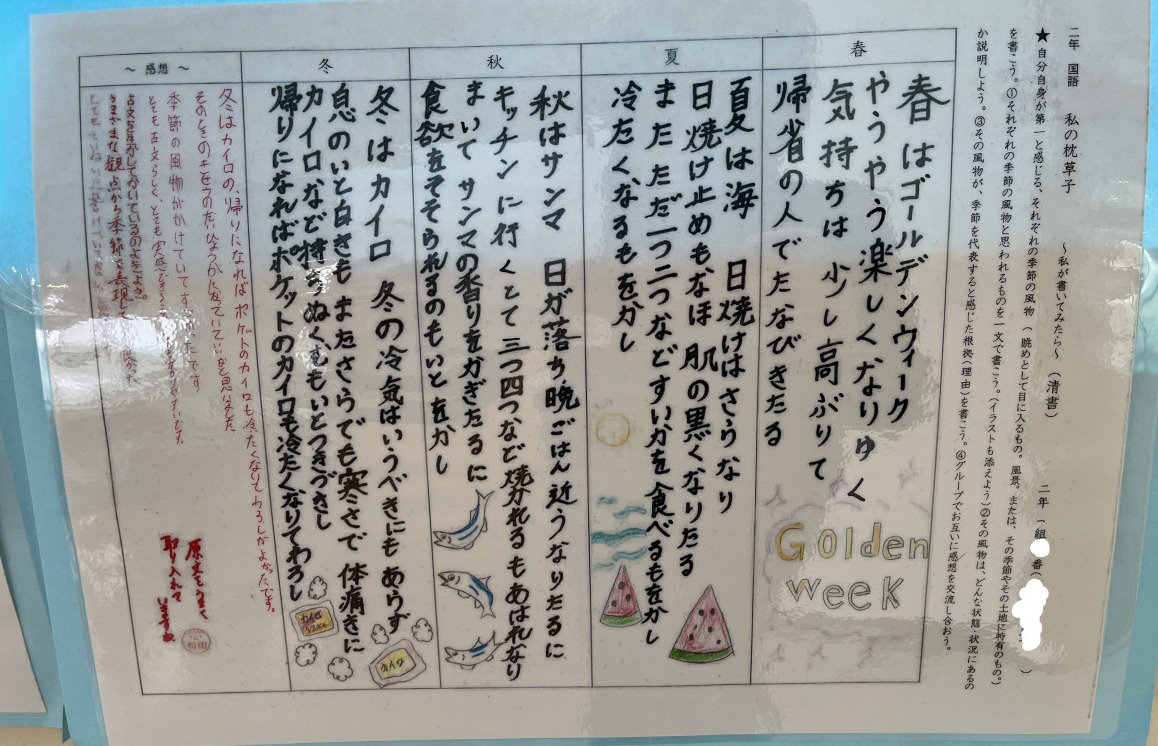 二年 国語 私の枕草子 ～私が書いてみたら～（清書）
二年一組 番（ ）
★自分自身が第一と感じる、それぞれの季節の風物（眺めとして目に入るもの。風景。または、その季節やその土地に特有のもの。）
を書こう。①それぞれの季節の風物と思われるものを一文で書こう。（イラストも添えよう）②その風物は、どんな状態・状況にあるの
か説明しよう。③その風物が、季節を代表すると感じた根拠（理由）を書こう。④グループでお互いに感想を交流し合おう。
春
春はゴールデンウィーク
やうやう楽しくなりゆく
気持ちは 少し高ぶりて
帰省の人でたなびきたる
Golden
week
夏
夏は海 日焼けはさらなり
日焼け止めもなほ 肌の黒くなりたる
まただ一つ二つなどすいかを食べるもをかし
冷たくなるもをかし
秋
秋はサンマ 日が落ち晩ごはん近うなりたるに
キッチンに行くとて 三つ四つなど焼かれるもあはれなり
まいてサンマの香りをかぎたるに
食欲をそそられるのもいとをかし
冬
冬はカイロ 冬の冷気はいうべきにもあらず
息のいと白きも またさらでも寒さで 体痛きに
カイロなど持ち ぬくもいとつきづきし
帰りになればポケットのカイロも冷たくなりてわろし
カイロ
カイロ
～感想～
冬はカイロの、帰りになればポケットのカイロも冷たくなりてわろしがよかったです。
季節の風物がかけていて
とても古文らしく、とても実感
さまざまな観点から季節を表現して
原文をうまく
取り入れて
いますね